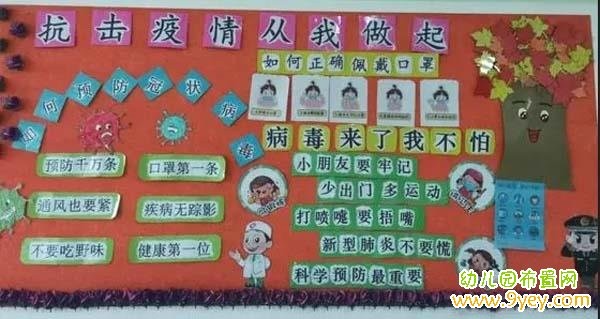 抗击疫情从我做起
如何正确佩戴口罩
如何预防冠状病毒
病毒来了我不怕
预防千万条
口罩第一条
通风也要紧
疾病无踪影
不要吃野味
健康第一位
小朋友要牢记
少出门多运动
打喷嚏要捂嘴
新型肺炎不要慌
科学预防最重要
幼儿园布置网
www.9yey.com